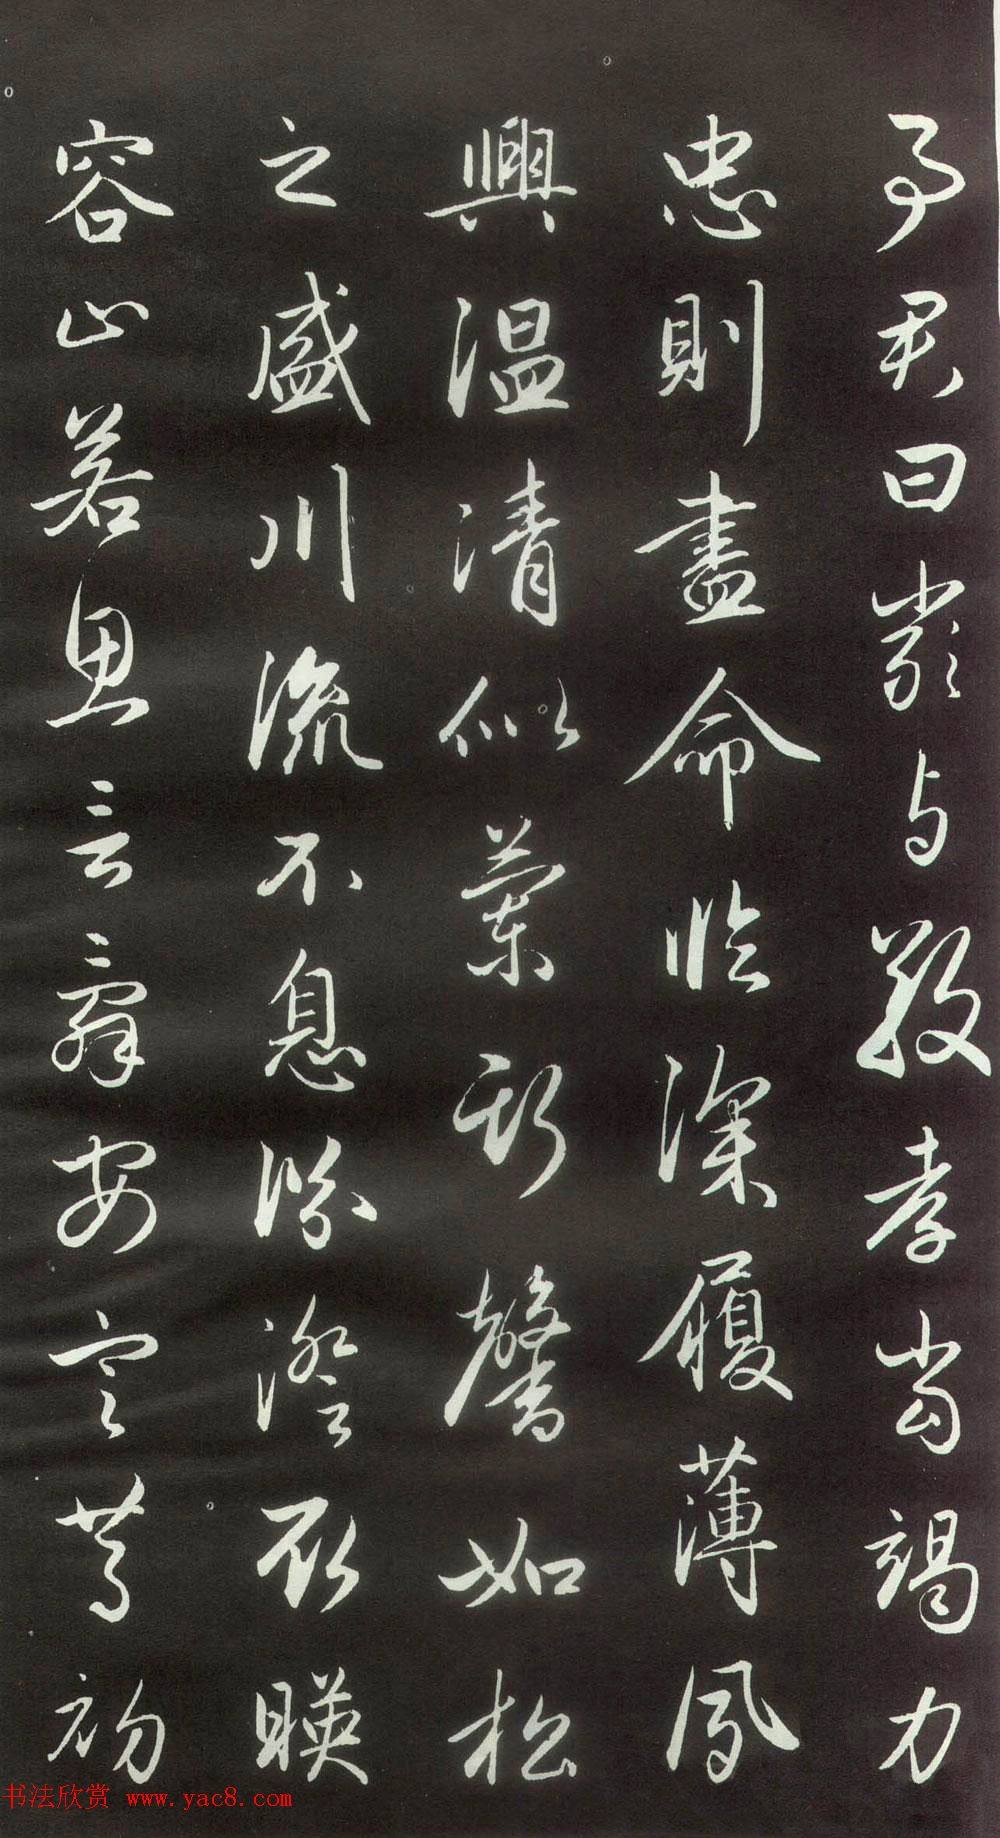 事君曰嚴與敬孝當竭力
忠則盡命臨深履薄夙
興温清似蘭斯馨如松
之盛川流不息淵澄取暎
容止若思言辭安定篤初
书法欣赏 www.yac8.com